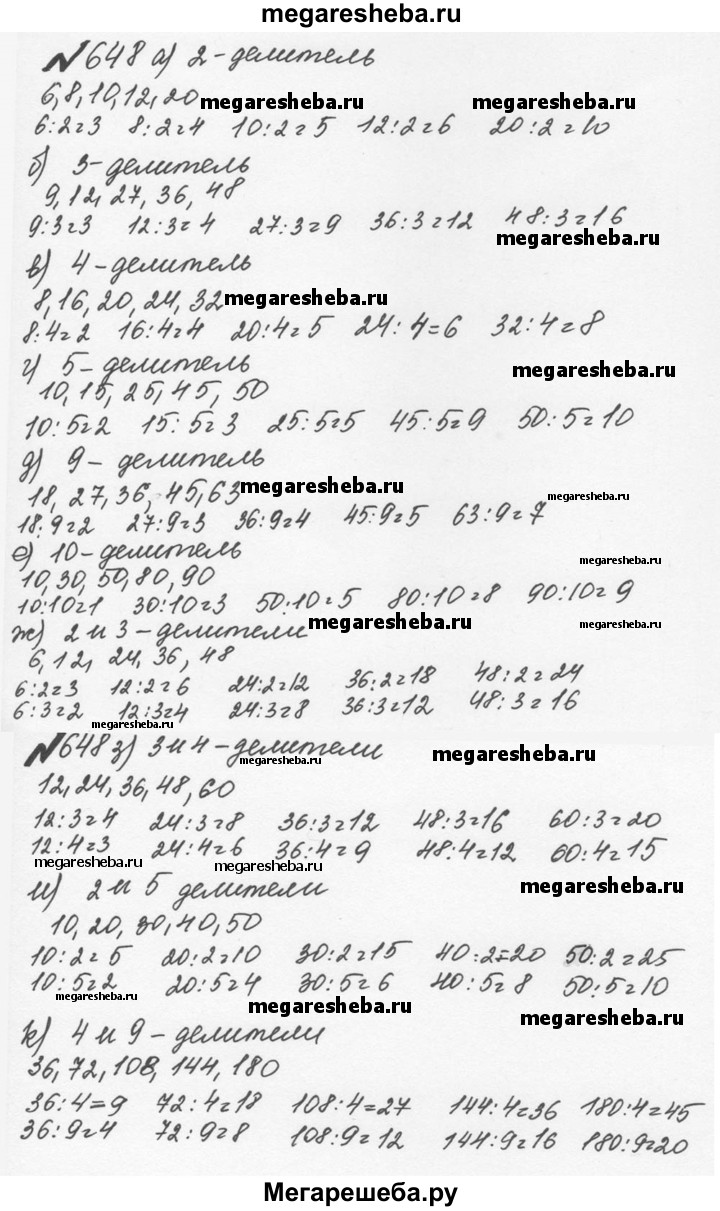 megaresheba.ru
№648 а) 2-делитель
6,8,10,12,20 megaresheba.ru megaresheba.ru
6:2=3 8:2=4 10:2=5 12:2=6 20:2=10
б) 3-делитель
9,12,27,36,48
9:3=3 12:3=4 27:3=9 36:3=12 48:3=16
megaresheba.ru
в) 4-делитель
8,16,20,24,32 megaresheba.ru
8:4=2 16:4=4 20:4=5 24:4=6 32:4=8
г) 5-делитель megaresheba.ru
10,15,25,45,50
10:5=2 15:5=3 25:5=5 45:5=9 50:5=10
д) 9-делитель
18,27,36,45,63 megaresheba.ru megaresheba.ru
18:9=2 27:9=3 36:9=4 45:9=5 63:9=7
е) 10-делитель megaresheba.ru
10,30,50,80,90
10:10=1 30:10=3 50:10=5 80:10=8 90:10=9
ж) 2 и 3-делители megaresheba.ru megaresheba.ru
6,12,24,36,48
6:2=3 12:2=6 24:2=12 36:2=18 48:2=24
6:3=2 12:3=4 24:3=8 36:3=12 48:3=16
megaresheba.ru
№648 з) 3 и 4-делители megaresheba.ru
megaresheba.ru
12,24,36,48,60
12:3=4 24:3=8 36:3=12 48:3=16 60:3=20
12:4=3 24:4=6 36:4=9 48:4=12 60:4=15
megaresheba.ru megaresheba.ru
и) 2 и 5 делители megaresheba.ru
10,20,30,40,50
10:2=5 20:2=10 30:2=15 40:2=20 50:2=25
10:5=2 20:5=4 30:5=6 40:5=8 50:5=10
megaresheba.ru megaresheba.ru megaresheba.ru
к) 4 и 9-делители
36,72,108,144,180
36:4=9 72:4=18 108:4=27 144:4=36 180:4=45
36:9=4 72:9=8 108:9=12 144:9=16 180:9=20
Мегарешеба.ру